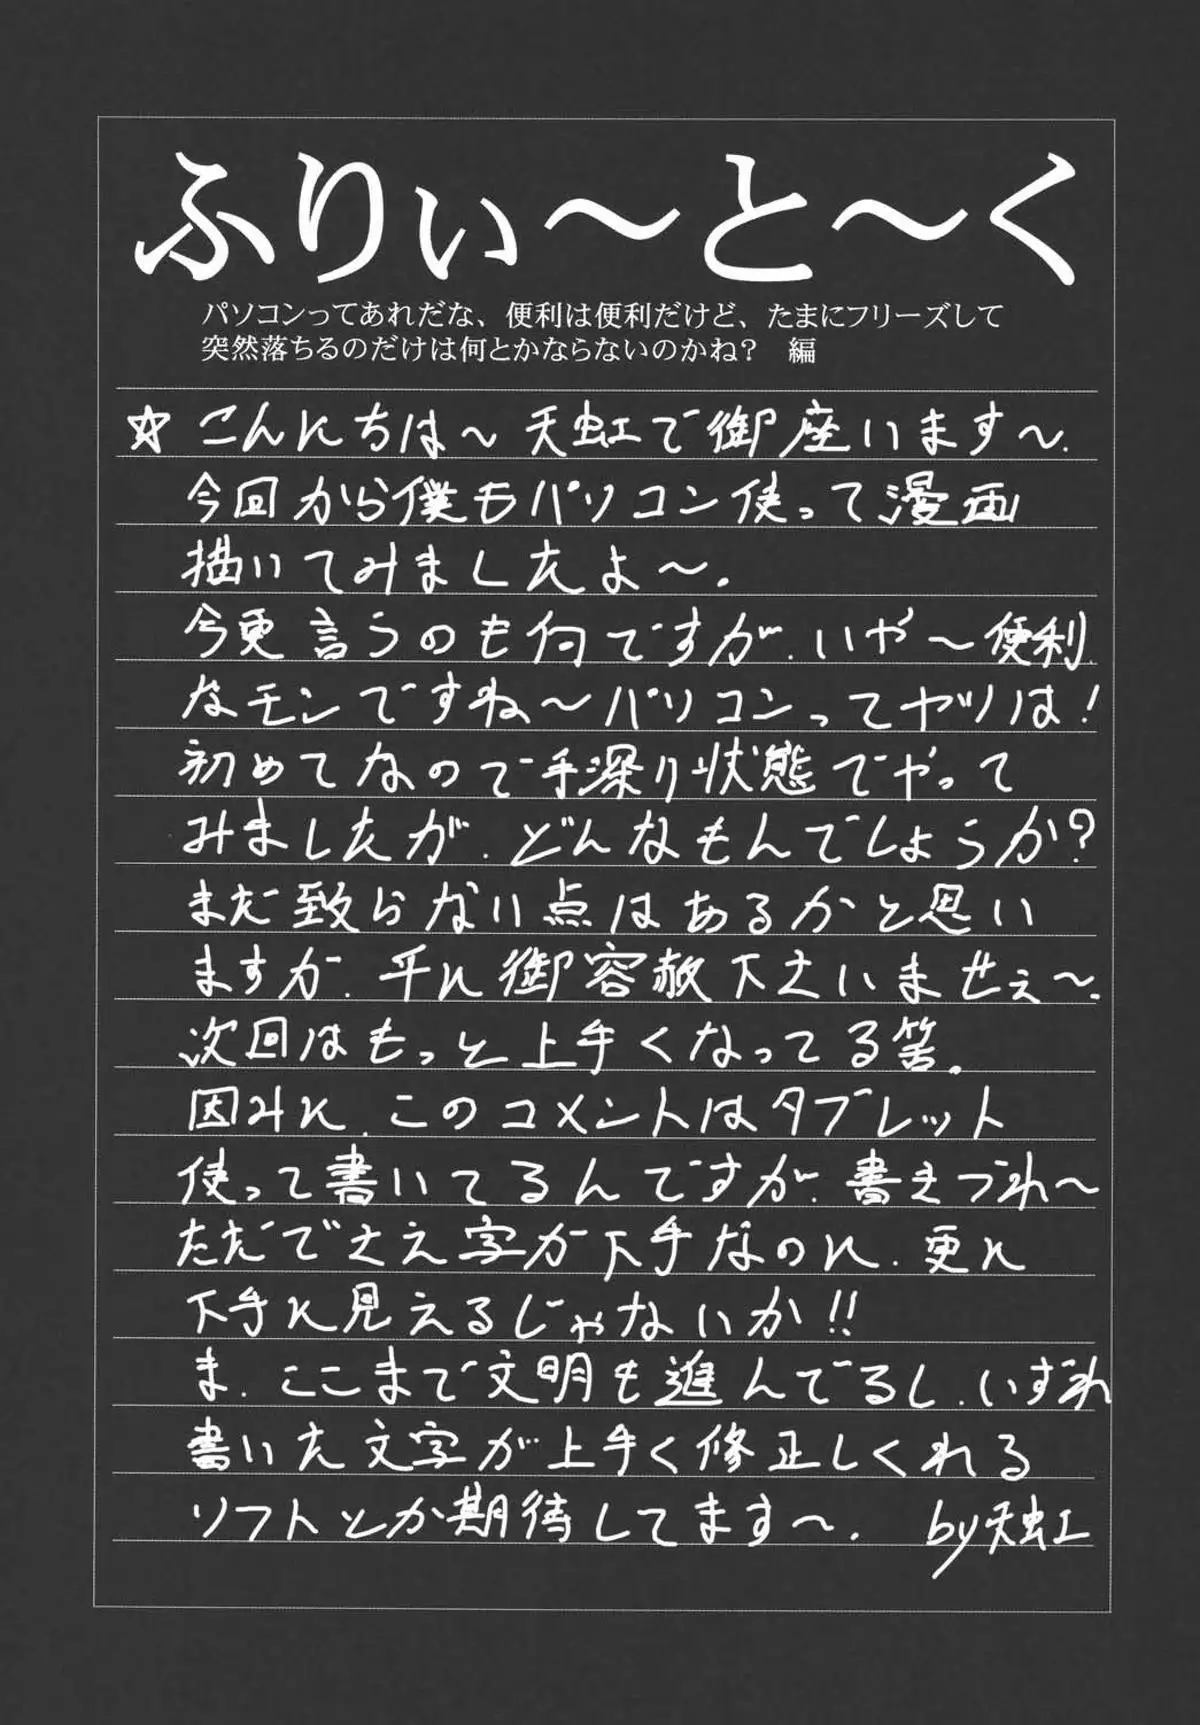 ふりぃ～と～く
パソコンってあれだな、便利は便利だけど、たまにフリーズして
突然落ちるのだけは何とかならないのかね？　編
☆ こんにちは～ 天虹で御座います～.
今回から僕もパソコン使って漫画
描いてみましたよ～.
今更言うのも何ですが. いや～便利
なモンですね～パソコンってヤツは!
初めてなので手探り状態でやって
みましたが. どんなもんでしょうか?
まだ致らない点はあるかと思い
ますが. 平に御容赦下さいませぇ～.
次回はもっと上手くなってる筈.
因みに. このコメントはタブレット
使って書いてるんですが. 書きづれ～
ただでさえ字が下手なのに. 更に
下手に見えるじゃないか!!
ま. ここまで文明も進んでるし. いずれ
書いた文字が上手く修正しくれる
ソフトとか期待してます～. by天虹